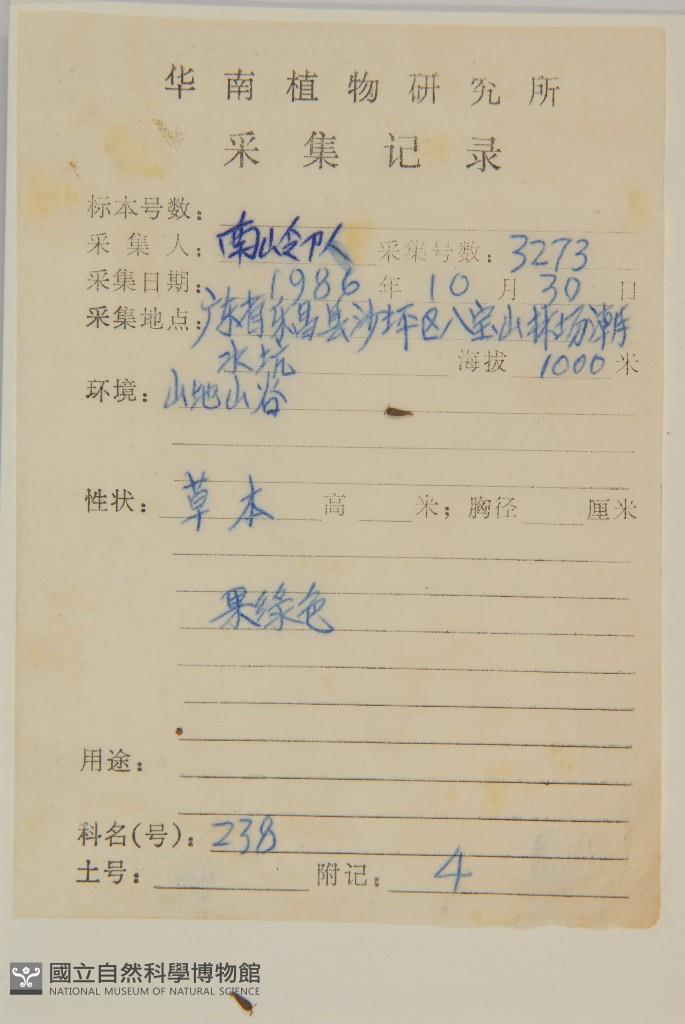 华南植物研究所
采集记录
标本号数：
采集人：南岭队 采集号数：3273
采集日期：1986年10月30日
采集地点：广东省乐昌县沙坪区八宝山林场潮
水坑 海拔1000米
环境：山地山谷
性状：草本 高 米；胸径 厘米
果绿色
用途：
科名(号)：238
土号： 附记：4
國立自然科學博物館
NATIONAL MUSEUM OF NATURAL SCIENCE